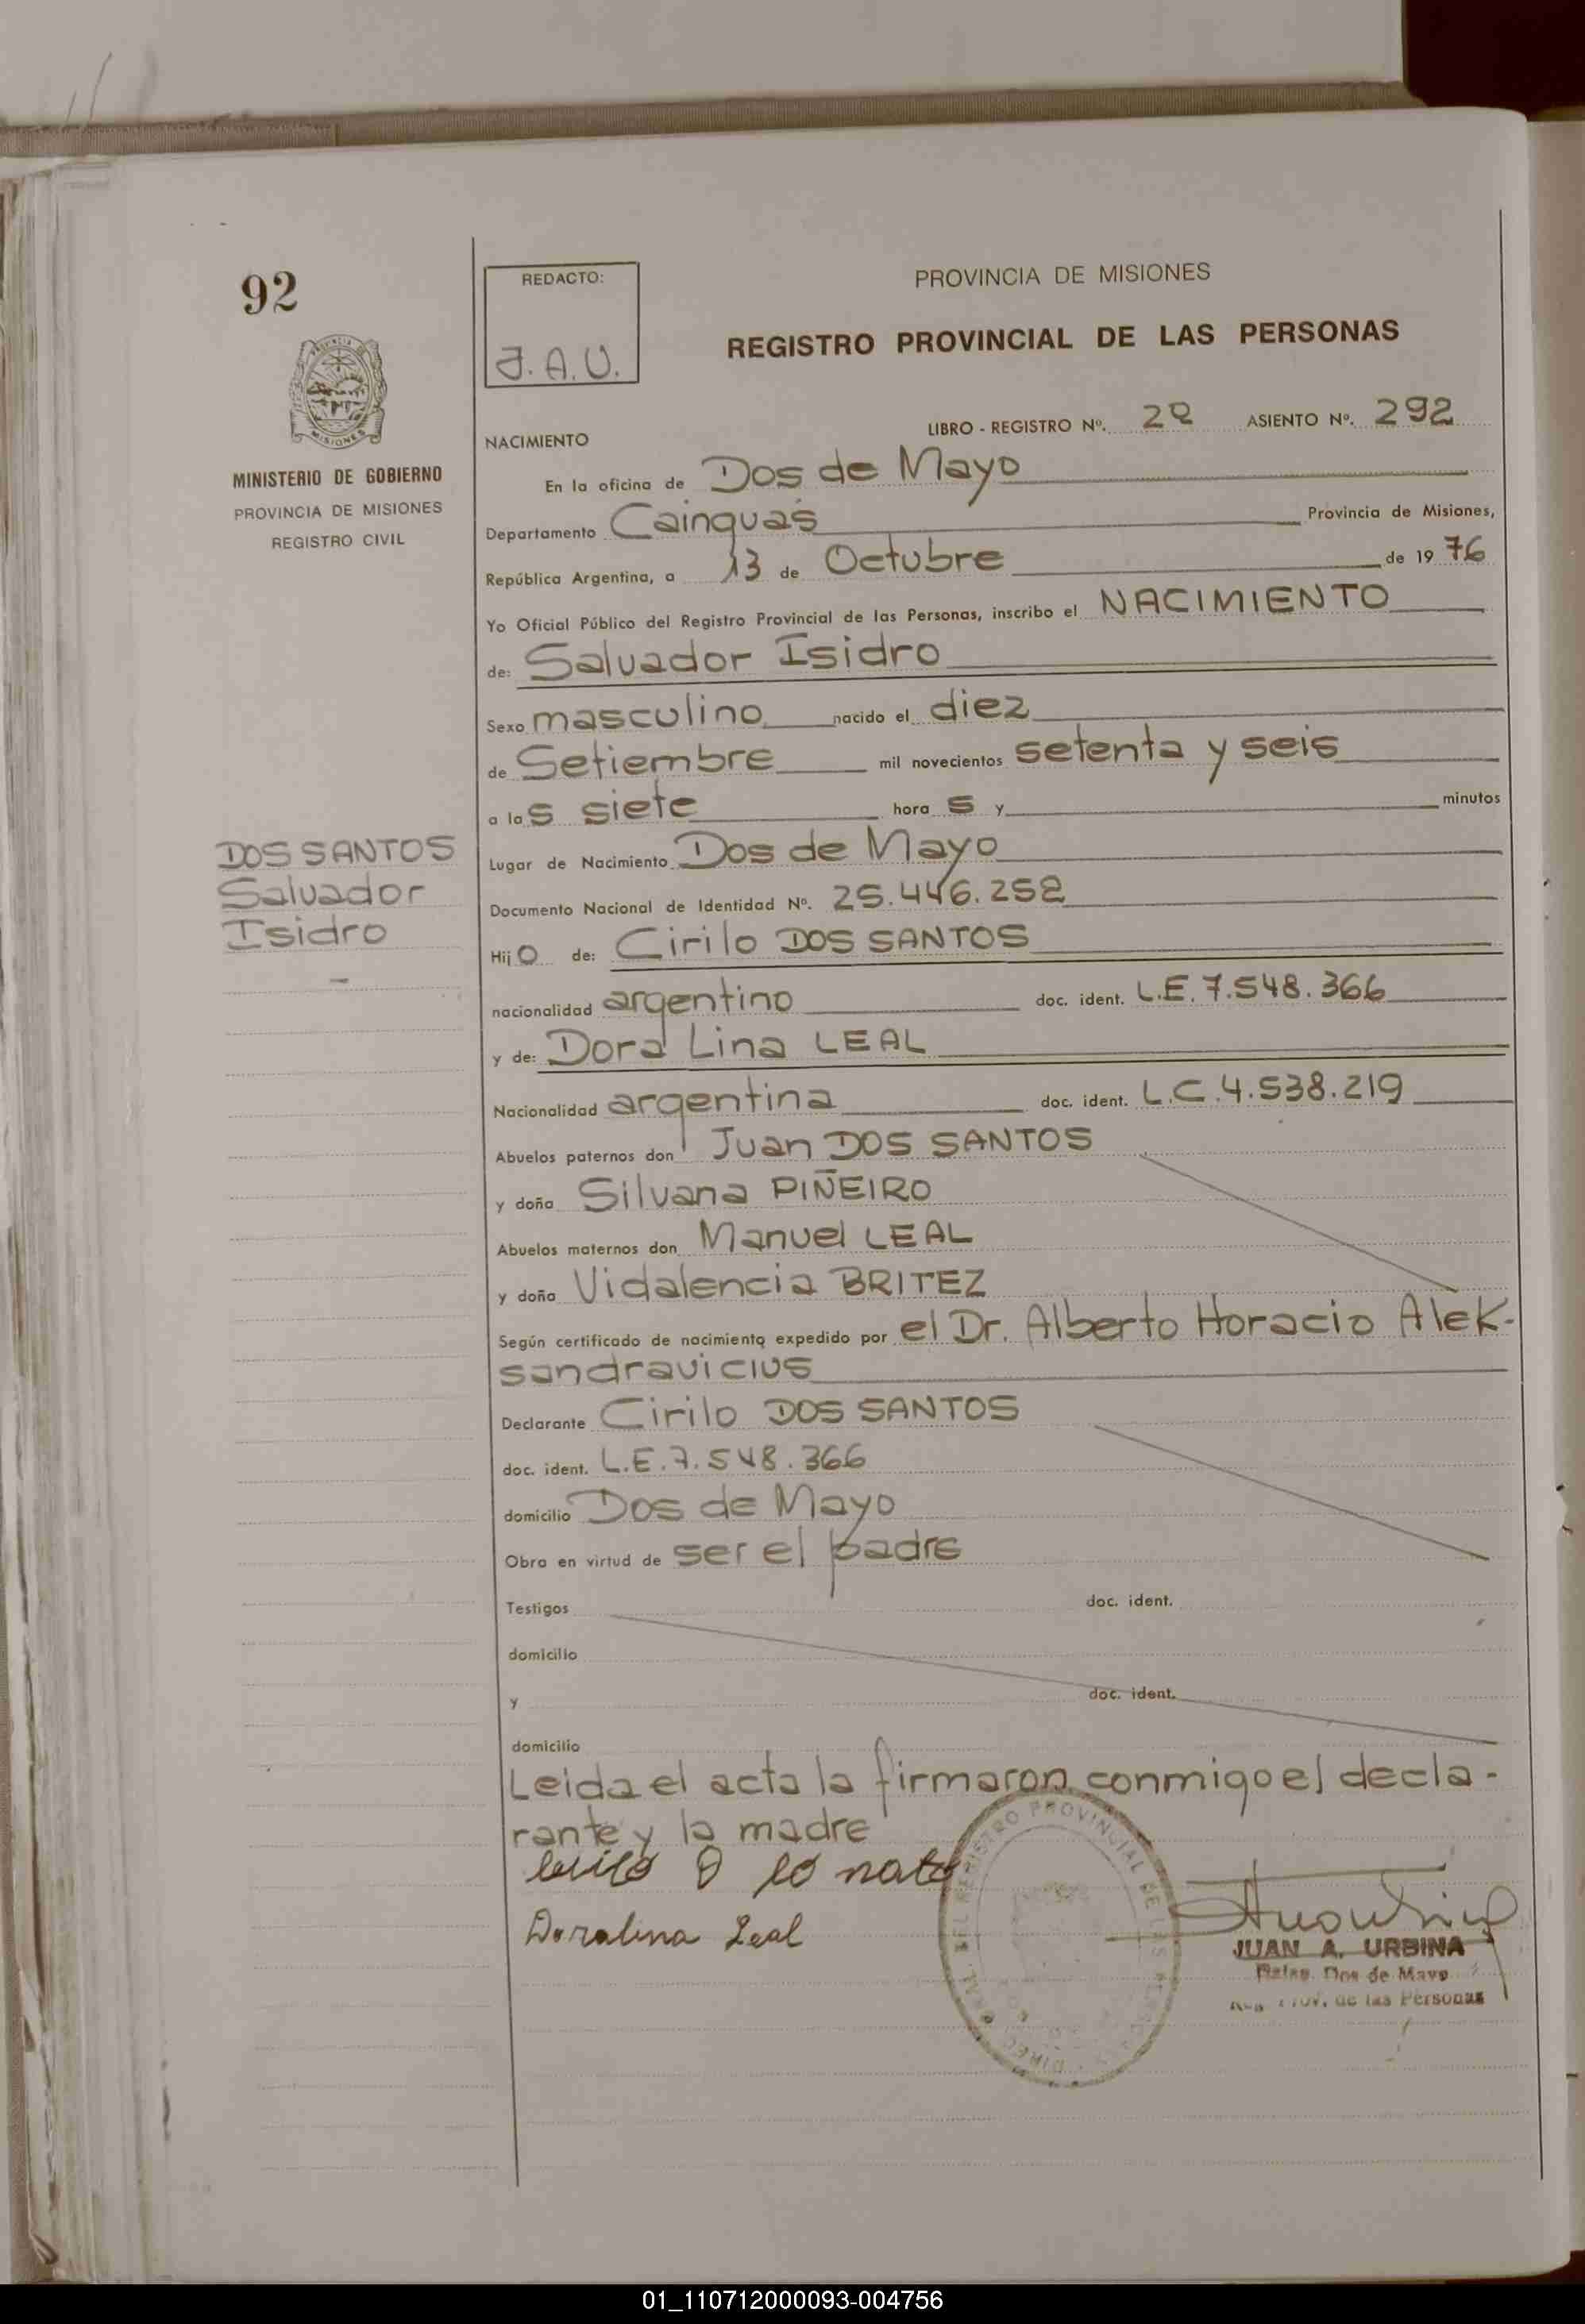 92
PROVINCIA DE MISIONES
MINISTERIO DE GOBIERNO
PROVINCIA DE MISIONES
REGISTRO CIVIL
DOS SANTOS
Salvador
Isidro
REDACTO:
J.A.U.
PROVINCIA DE MISIONES
REGISTRO PROVINCIAL DE LAS PERSONAS
LIBRO - REGISTRO Nº. 2º ASIENTO Nº. 292
NACIMIENTO
En la oficina de Dos de Mayo
Departamento Cainguás Provincia de Misiones,
República Argentina, a 13 de Octubre de 19 76
Yo Oficial Público del Registro Provincial de las Personas, inscribo el NACIMIENTO
de: Salvador Isidro
Sexo masculino nacido el diez
de Setiembre mil novecientos setenta y seis
a las siete horas y minutos
Lugar de Nacimiento Dos de Mayo
Documento Nacional de Identidad Nº. 25.446.252
Hijo de: Cirilo DOS SANTOS
nacionalidad argentino doc. ident. L.E. 7.548.366
y de: Dora Lina LEAL
Nacionalidad argentina doc. ident. L.C. 4.538.219
Abuelos paternos don Juan DOS SANTOS
y doña Silvana PIÑEIRO
Abuelos maternos don Manuel LEAL
y doña Vidalencia BRITEZ
Según certificado de nacimiento expedido por el Dr. Alberto Horacio Alek-
sandravicius
Declarante Cirilo DOS SANTOS
doc. ident. L.E. 7.548.366
domicilio Dos de Mayo
Obra en virtud de ser el padre
Testigos doc. ident.
domicilio
y doc. ident.
domicilio
Leida el acta la firmaron conmigo el decla-
rante y la madre
Doralina Leal
REGISTRO PROVINCIAL DE LAS
JUAN A. URBINA
Dos de Mayo
Prov. de las Personas
01_110712000093-004756